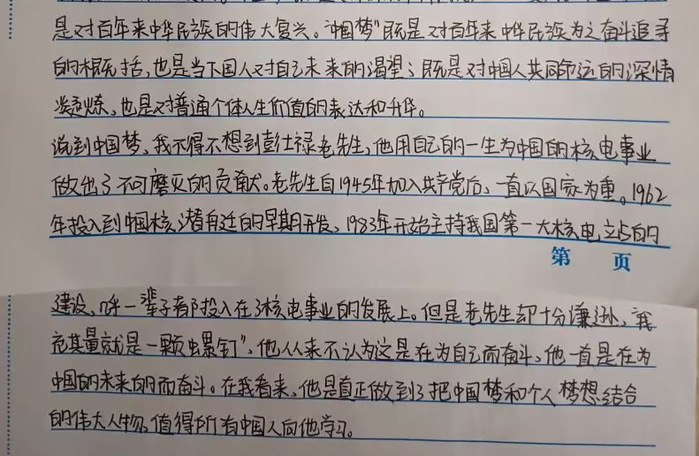 是对百年来中华民族的伟大复兴。“中国梦”既是对百年来中华民族为之奋斗追寻
的概括，也是当下国人对自己未来的渴望；既是对中国人共同命运的深情
炼，也是对普通个体人生价值的表达和升华。
说到中国梦，我不得不想到彭士禄老先生，他用自己的一生为中国的核电事业
做出了不可磨灭的贡献。老先生自1945年加入共产党后，一直以国家为重。1962
年投入到中国核潜舟过的早期开发，1983年开始主持我国第一大核电站的
第 页
建设，一辈子都投入在了核电事业的发展上。但是老先生却十分谦逊，“我
充其量就是一颗螺钉”，他从来不认为这是在为自己而奋斗，他一直是在为
中国的未来的而奋斗。在我看来，他是真正做到了把中国梦和个人梦想结合
的伟大人物，值得所有中国人向他学习。